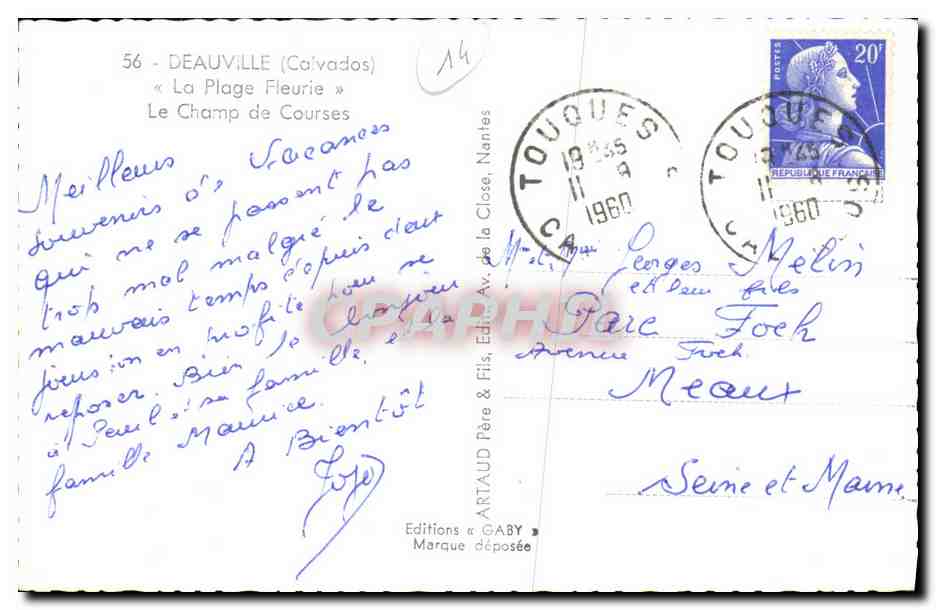 56 - DEAUVILLE (Calvados)
« La Plage Fleurie »
Le Champ de Courses
14
Meilleurs
souvenirs d', Vacances
qui ne se passent pas
trop mal malgré le
mauvais temps depuis deux
jours on en profite pour se
reposer. Bien le bonjour
à Paul et sa famille, et la
famille Maurice.
A Bientôt
Jojo
ARTAUD Père & Fils, Edit. Av. de la Close, Nantes
Editions « GABY »
Marque déposée
TOUQUES
CA
18 H35
11 - 8
1960
TOUQUES
CALVADOS
18 H35
11 - 8
1960
POSTES
20F
REPUBLIQUE FRANCAISE
Mr et Mme Georges Melin
et leur fils
Parc Foch
Avenue Foch
Meaux
Seine et Marne
CPAPHIL